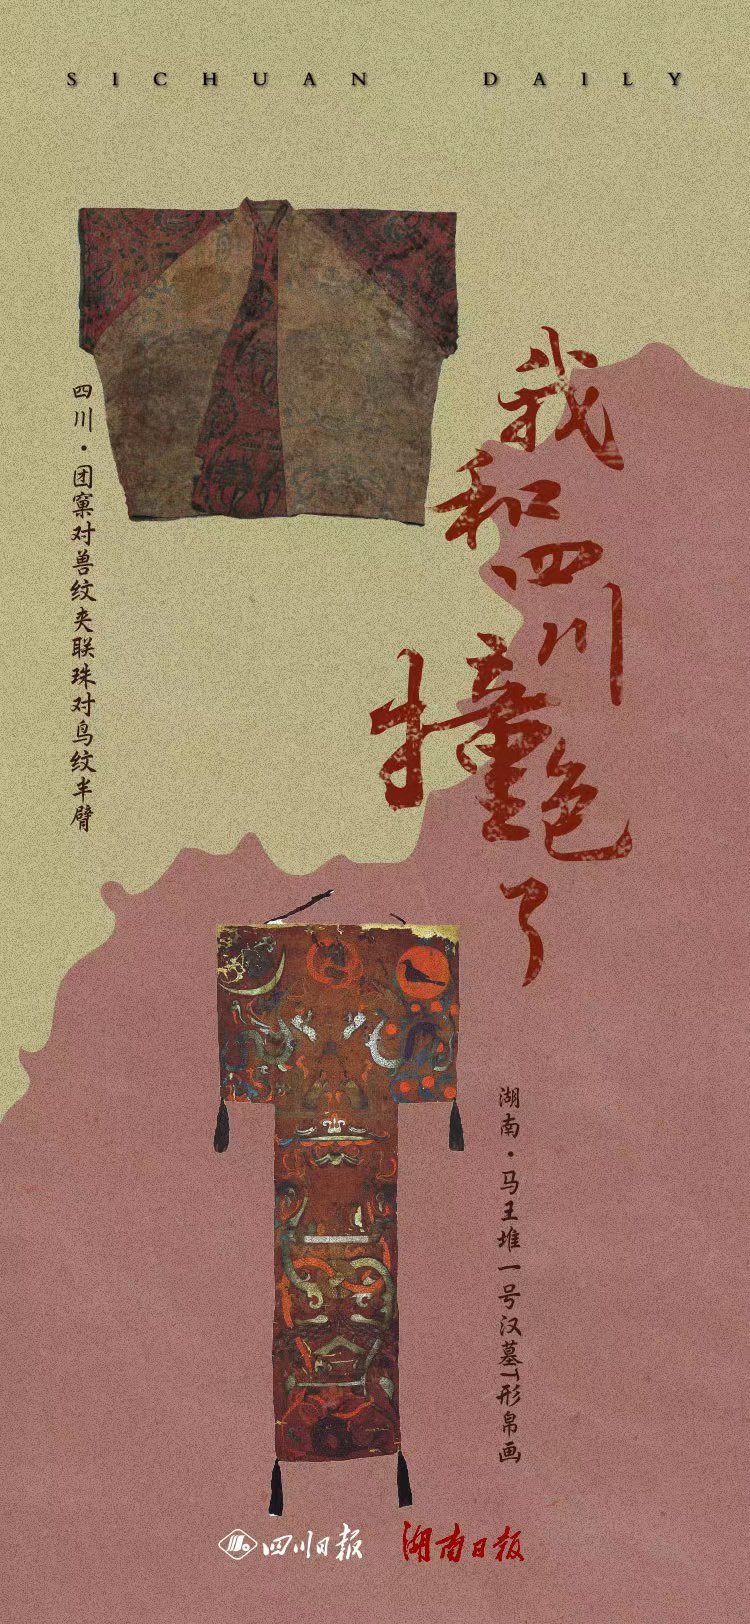 SICHUAN DAILY
四川·团窠对兽纹夹联珠对鸟纹半臂
我和四川撞色了
湖南·马王堆一号汉墓T形帛画
四川日报
湖南日报